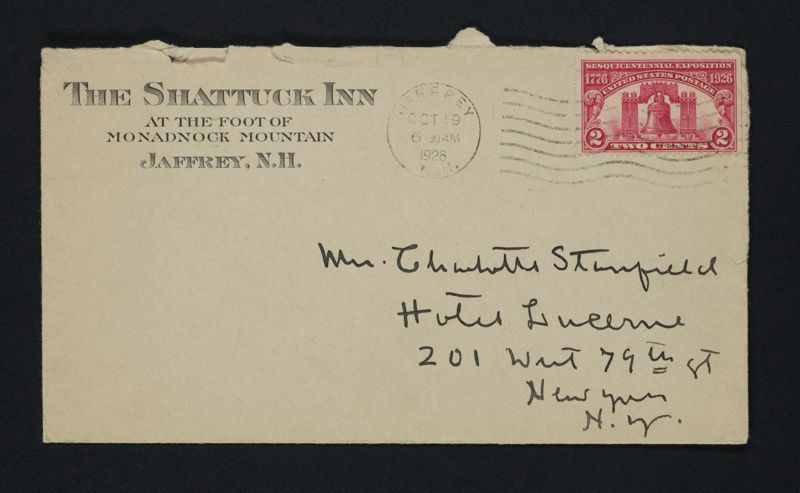 THE SHATTUCK INN
AT THE FOOT OF
MONADNOCK MOUNTAIN
JAFFREY, N.H.
JAFFREY
OCT 19
6 30AM
1926
N.H.
SESQUICENTENNIAL EXPOSITION
1776 1926
UNITED STATES POSTAGE
2 2
TWO CENTS
Mrs. Charlotte Stanfield
Hotel Lucerne
201 West 79th St
New York
N.Y.